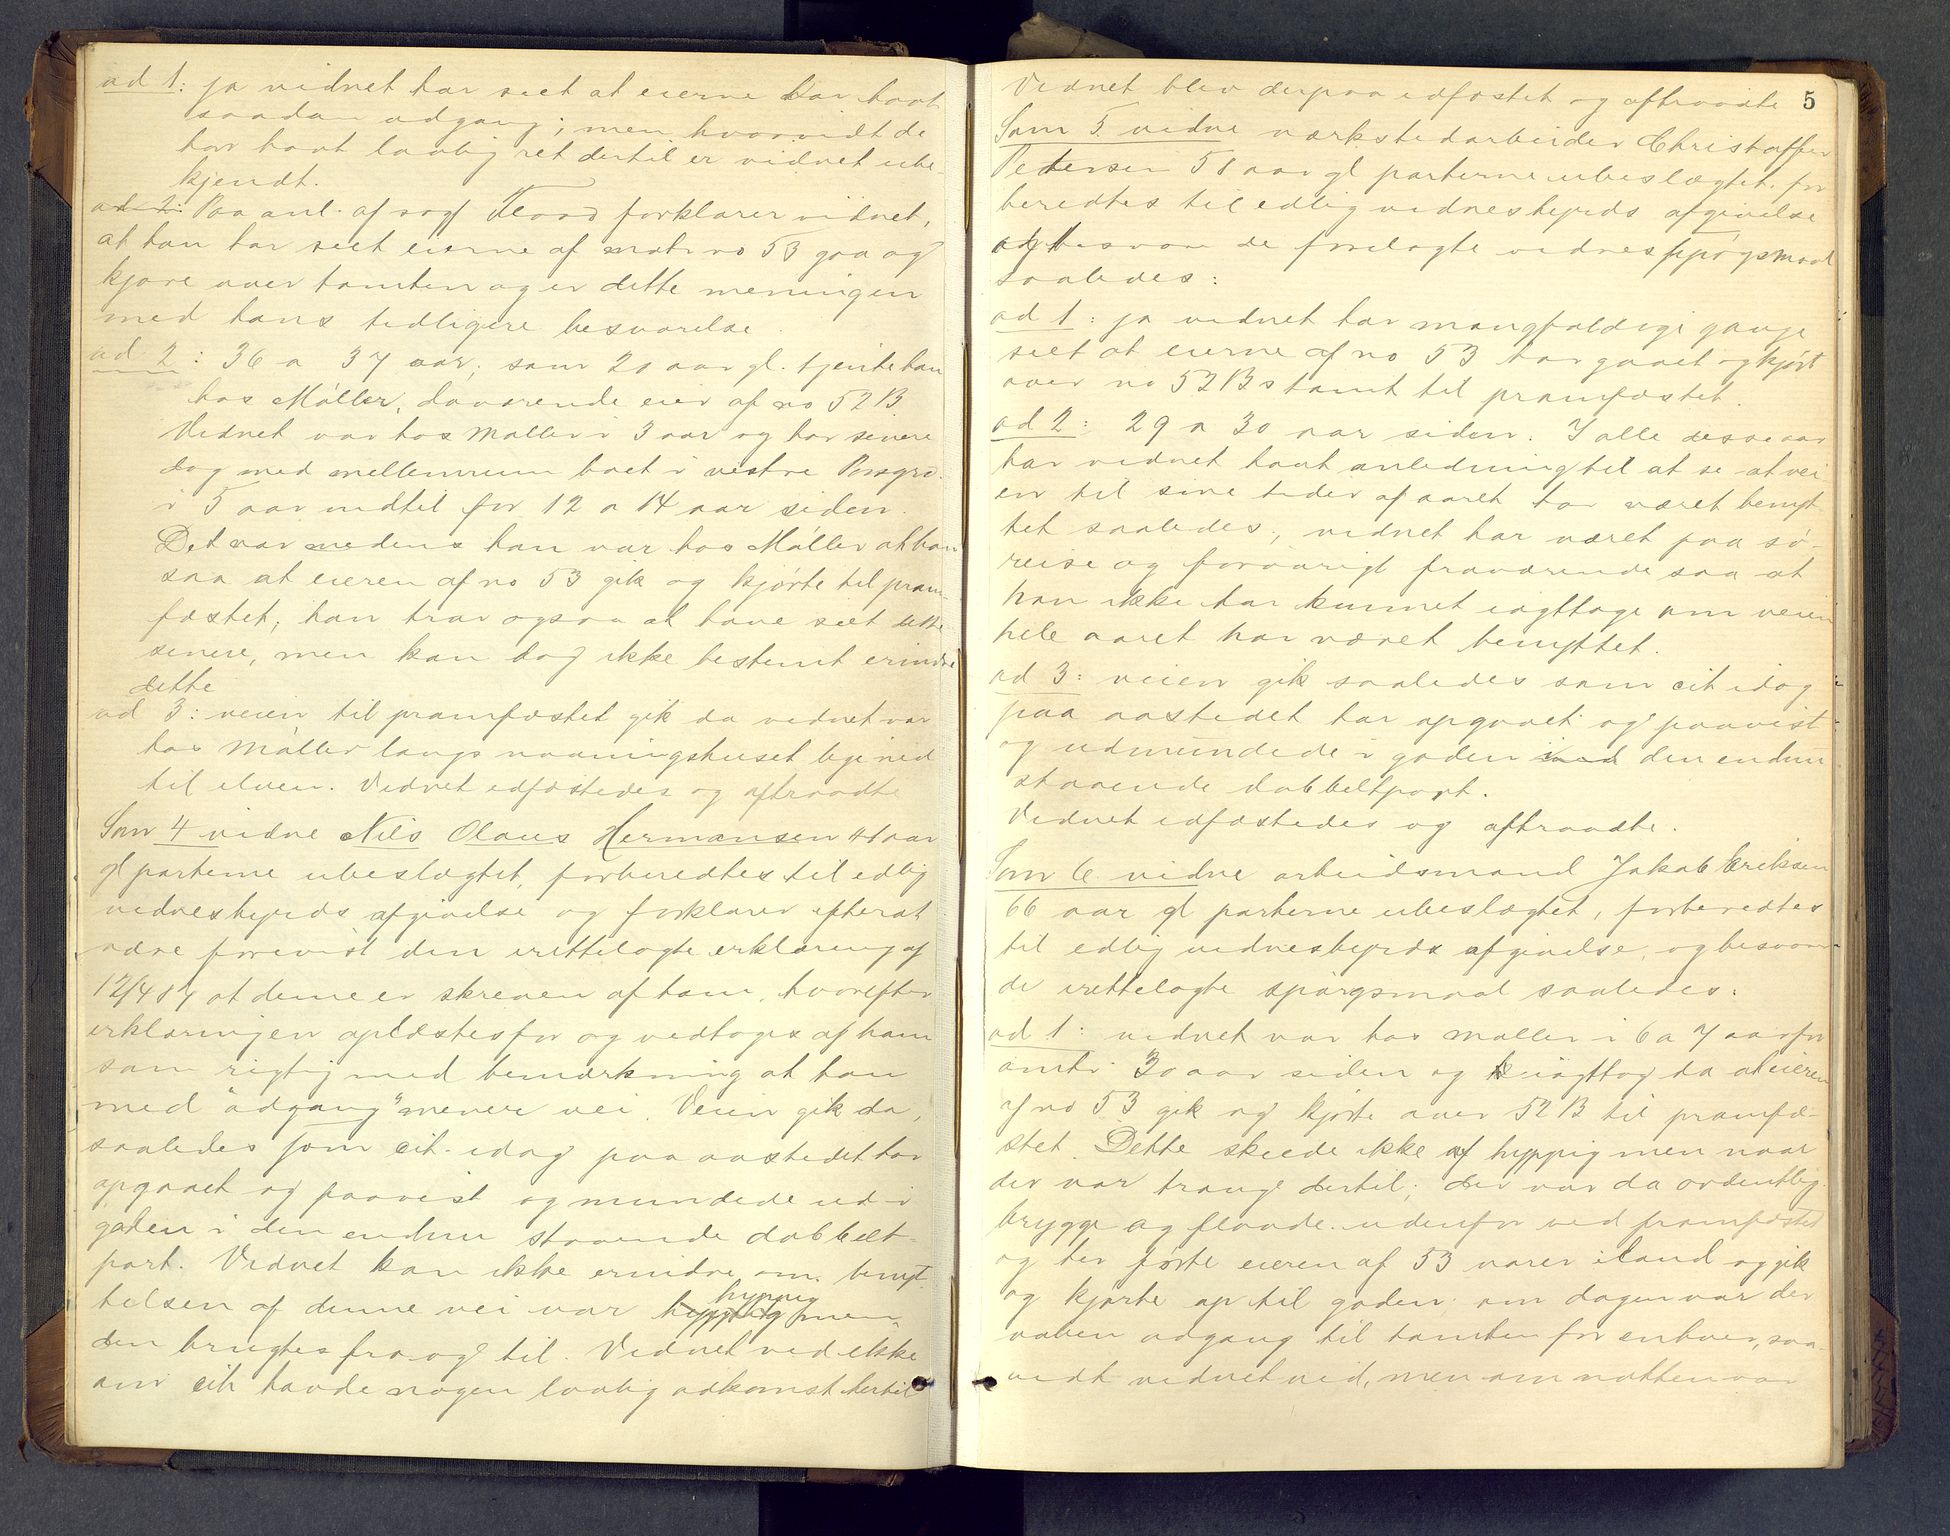 ad 1: ja vidnet har seet at eierne har havt
saadan adgang; men hvorvidt de
har havt lovlig ret dertil er vidnet ube-
kjendt.
ad 2: Paa anl. af sagf Flood forklarer vidnet,
at han har seet eierne af matr no 53 gaa og
kjøre over tomten og er dette meningen
med hans tidligere besvarelse.
ad 2: 36 a 37 aar; som 20 aar gl. tjente han
hos Møller, daværende eier af no 52 B.
Vidnet var hos Møller i 3 aar og har senere
dog med mellemrum boet i vestre Porsgr.
i 5 aar indtil for 12 a 14 aar siden.
Det var medens han var hos Møller at han
saa at eieren af no 53 gik og kjørte til pram-
fæstet; han tror ogsaa at have seet dette
senere, men kan dog ikke bestemt erindre
dette
ad 3: veien til pramfæstet gik da vidnet var
hos Møller langs vaaningshuset lige ned
til elven. Vidnet edfæstedes og aftraadte
Som 4 vidne Nils Olaus Hermansen 41 aar
gl parterne ubeslægtet, forberedtes til edlig
vidnesbyrds afgivelse og forklarer efter at
være forevist den irettelagte erklæring af
12/4 87 at denne er skreven af ham, hvorefter
erklæringen oplæstes for og vedtoges af ham
som rigtig med bemærkning at han
med "adgang" mener vei. Veien gik da,
saaledes som cit. idag paa aastedet har
opgaaet og paavist og mundede ud i
gaden i den endnu staaende dobbelt-
port. Vidnet kan ikke erindre om benyt-
telsen af denne vei var hyppig men
den brugtes fra og til. Vidnet ved ikke
om cit. havde nogen lovlig adkomst dertil
5
Vidnet blev derpaa edfæstet og aftraadte
Som 5. vidne værkstedarbeider Christoffer
Petersen 51 aar gl parterne ubeslægtet. for
beredtes til edlig vidnesbyrds afgivelse
og besvarer de forelagte vidnespørgsmaal
saaledes:
ad 1: ja vidnet har mangfoldige gange
seet at eierne af no 53 har gaaet og kjørt
over no 52 Bs tomt til pramfæstet.
ad 2: 29 a 30 aar siden. I alle disse aar
har vidnet havt anledning til at se at vei
en til sine tider af aaret har været benyt
tet saaledes; vidnet har været paa sø-
reise og forøvrigt fraværende saa at
han ikke har kunnet iagttage om veien
hele aaret har været benyttet.
ad 3: veien gik saaledes som cit idag
paa aastedet har opgaaet og paavist
og udmundede i gaden ved den endnu
staaende dobbeltport.
Vidnet edfæstedes og aftraadte.
Som 6 vidne arbeidsmand Jakob Eriksen
66 aar gl parterne ubeslægtet, forberedtes
til edlig vidnesbyrds afgivelse, og besvarer
de irettelagte spørgsmaal saaledes:
ad 1: vidnet var hos Møller i 6 a 7 aar for
omtr 30 aar siden og iagttog da at eieren
af no 53 gik og kjørte over 52 B til pramfæ-
stet. Dette skeede ikke hyppig men naar
der var trang dertil; der var da ordentlig
brygge og flaade udenfor ved pramfæstet
og her førte eieren af 53 varer iland og gik
og kjørte op til gaden; om dagen var der
aaben adgang til tomten for enhver, saa-
vidt vidnet ved, men om natten var